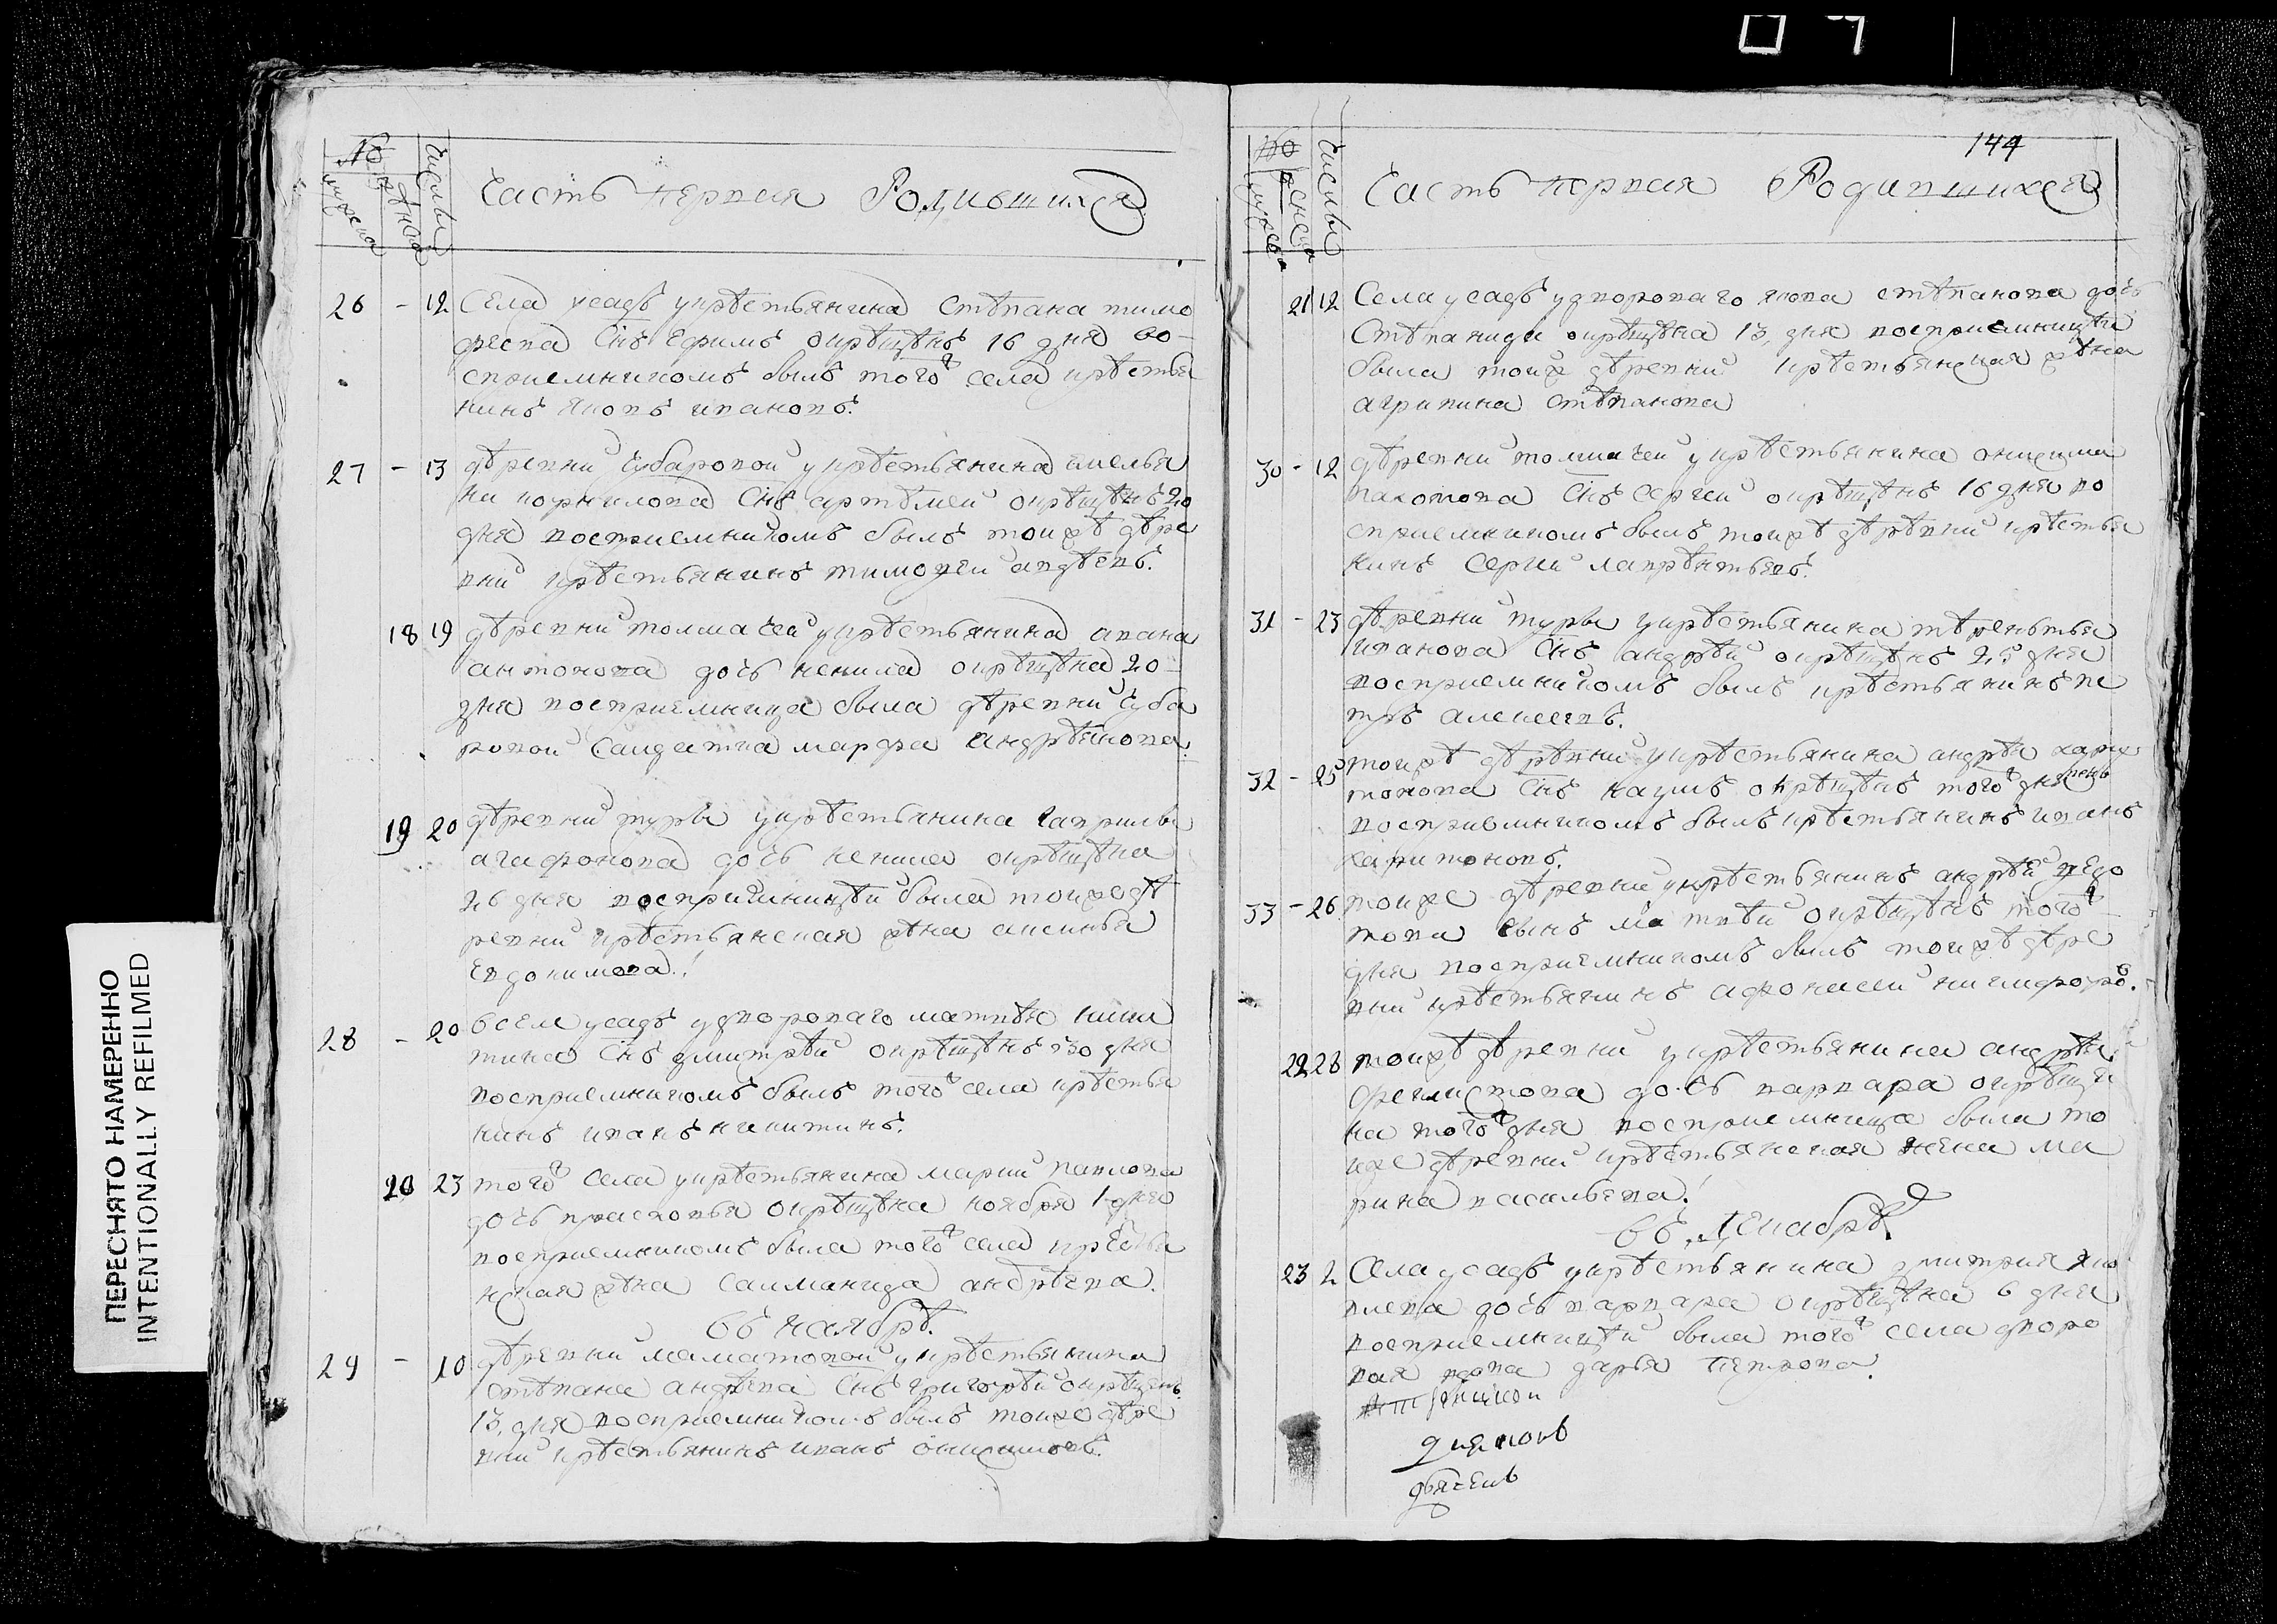 144
№ мужеска женска числы Часть первая Родившихся
26 - 12 Села усадъ у крѣстьянина Стѣпана тимо
феева Снъ Ефимъ окрѣщѣнъ 16 дня во-
сприемникомъ былъ того села крѣстья
нинъ яковъ ивановъ.
27 - 13 дѣревни Губаровой у крѣстьянина амелья
на корнилова Снъ артѣмей окрѣщѣнъ 20
дня восприемникомъ былъ тоижѣ дѣре
вни крѣстьянинъ тимофей авдѣевъ.
18 19 дѣревни толмачей у крѣстьянина ивана
антонова дочь ненила окрѣщѣна 20-
дня восприемница была дѣревни Губа
ровой Салдатка марфа андрѣянова.
19 20 дѣревни туры у крѣстьянина гаврилы
агафонова дочь ненила окрѣщѣна
26 дня восприемницѣй была тоиже дѣ
ревни крѣстьянская жѣна аксинья
Евдокимова.
28 - 20 в селе усадъ у дворового матвѣя ники
тина Снъ дмитрѣй окрѣщѣнъ 30 дня
восприемникомъ былъ того села крѣстья
нинъ иванъ никитинъ.
20 23 того села у крѣстьянина марки павлова
дочь прасковья окрѣщѣна ноября 1 дня
восприемникомъ была того села крѣстья
нская жѣна Саламанида андрѣева.
въ наябрѣ.
29 - 10 дѣревни маматовой у крѣстьянина
стѣпана андрѣева Снъ григорѣй окрѣщенъ
13, дня восприемникомъ былъ тоиже дѣре
вни крѣстьянинъ иванъ онисимовъ.
№ мужеска женска числы Часть первая Родившихся
21 12 Села усадъ у дворового якова стѣпанова дочь
Стѣпанида окрѣщѣна 13, дня восприемницѣй
была тоиж дѣревни крѣстьянская жѣна
агрипина стѣпанова
30 - 12 дѣревни толмачей у крѣстьянина онисима
пахомова Снъ Сергей окрѣщѣнъ 16 дня во
сприемникомъ былъ тоижѣ дѣрѣвни крѣстья
нинъ Сергей лаврѣнтьевъ.
31 - 23 дѣревни туры у крѣстьянина тѣрентья
иванова Снъ андрѣй окрѣщѣнъ 25 дня
восприемникомъ былъ крѣстьянинъ пе
тръ алексеевъ.
32 - 25 тоижѣ дѣрѣвни у крѣстьянина андрѣя хари
тонова Снъ наумъ окрѣщѣнъ того дня
восприемникомъ былъ крѣстьянинъ иванъ
харитоновъ.
33 - 26 тоиже дѣревни у крѣстьянинъ андрѣй федо
това сынъ матвѣй окрѣщѣнъ того
дня восприемникомъ былъ тоижѣ дѣре
вни крѣстьянинъ афонасей никифоровъ.
22 26 тоижѣ дѣревни у крѣстьянина андрѣя
феклистова дочь варвара окрѣще
на того дня восприемница была то
иже дѣревни крѣстьянская жена ма
рина васильева.
въ декабрѣ
23 2 Села усадъ у крѣстьянина дмитрия яко
влева дочь варвара окрѣщѣна 6 дня
восприемницѣй была того села дворо
вая вдова дарья петрова.
дияконъ
дьячекъ
ПЕРЕСНЯТО НАМЕРЕННО
INTENTIONALLY REFILMED